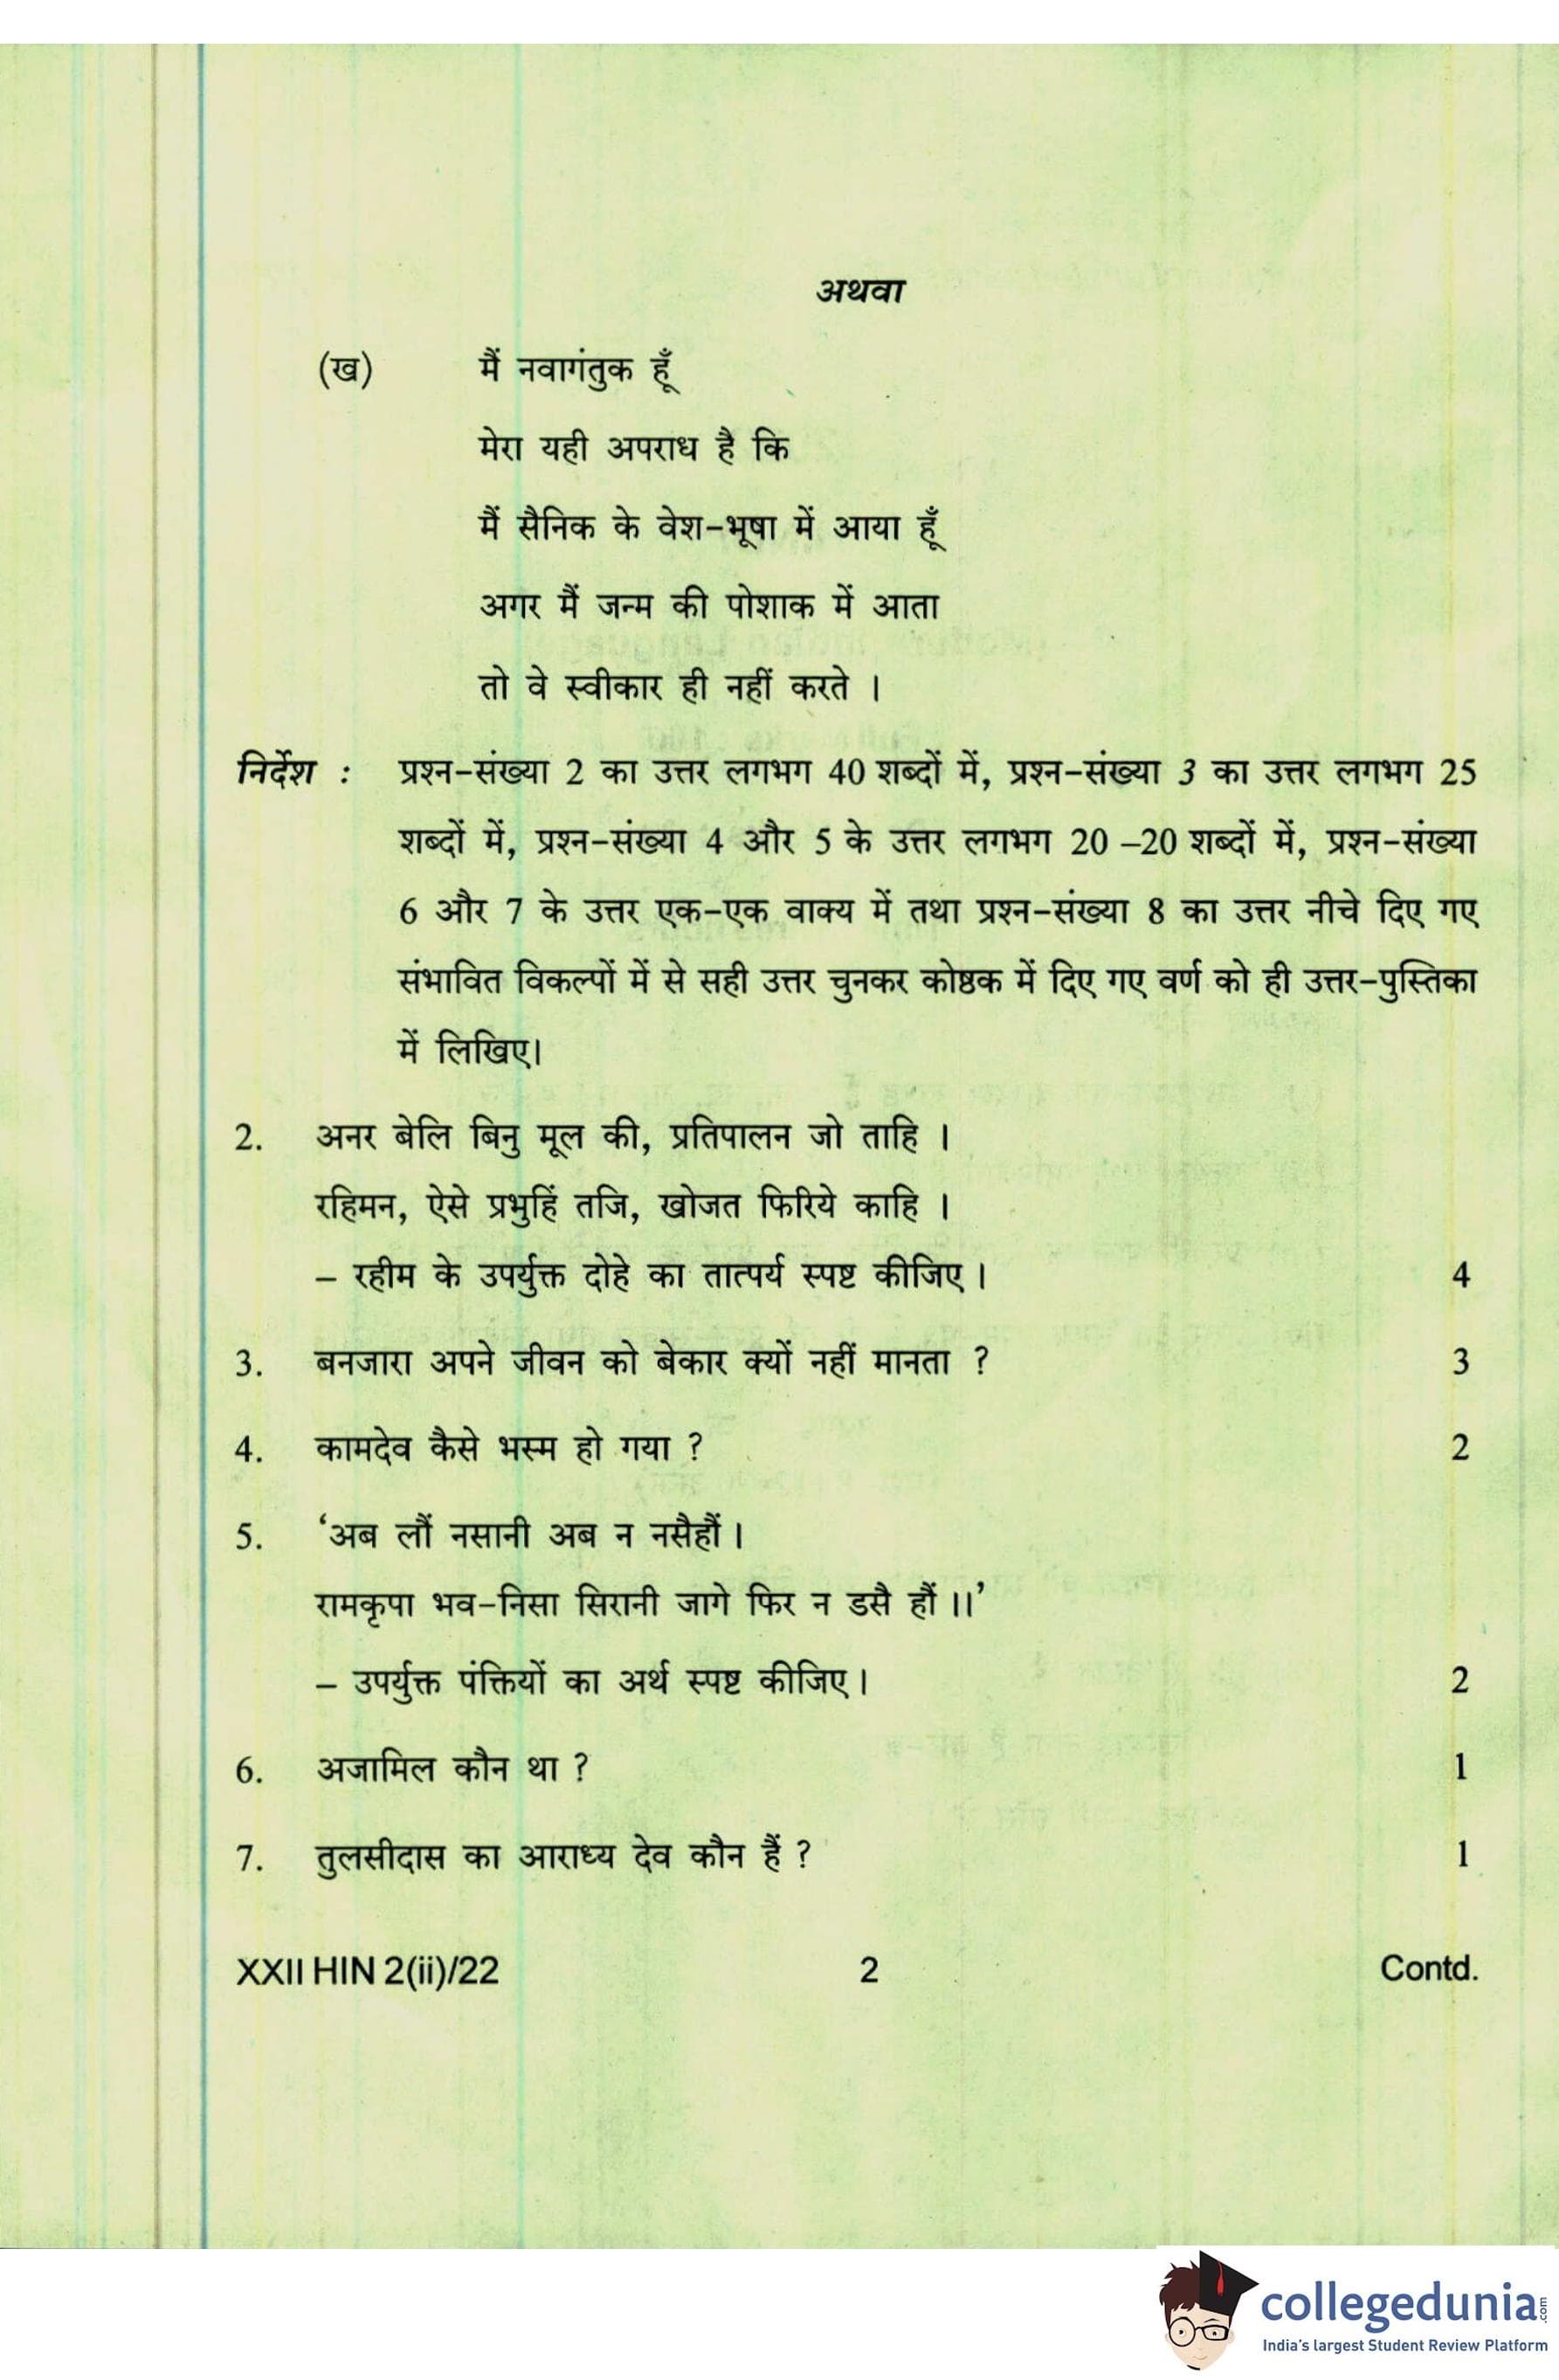 अथवा
(ख) मैं नवागंतुक हूँ
मेरा यही अपराध है कि
मैं सैनिक के वेश-भूषा में आया हूँ
अगर मैं जन्म की पोशाक में आता
तो वे स्वीकार ही नहीं करते ।
निर्देश : प्रश्न-संख्या 2 का उत्तर लगभग 40 शब्दों में, प्रश्न-संख्या 3 का उत्तर लगभग 25
शब्दों में, प्रश्न-संख्या 4 और 5 के उत्तर लगभग 20 –20 शब्दों में, प्रश्न-संख्या
6 और 7 के उत्तर एक-एक वाक्य में तथा प्रश्न-संख्या 8 का उत्तर नीचे दिए गए
संभावित विकल्पों में से सही उत्तर चुनकर कोष्ठक में दिए गए वर्ण को ही उत्तर-पुस्तिका
में लिखिए।
2. अनर बेलि बिनु मूल की, प्रतिपालन जो ताहि ।
रहिमन, ऐसे प्रभुहिं तजि, खोजत फिरिये काहि ।
– रहीम के उपर्युक्त दोहे का तात्पर्य स्पष्ट कीजिए । 4
3. बनजारा अपने जीवन को बेकार क्यों नहीं मानता ? 3
4. कामदेव कैसे भस्म हो गया ? 2
5. ‘अब लौं नसानी अब न नसैहौं ।
रामकृपा भव-निसा सिरानी जागे फिर न डसै हौं ।।’
– उपर्युक्त पंक्तियों का अर्थ स्पष्ट कीजिए । 2
6. अजामिल कौन था ? 1
7. तुलसीदास का आराध्य देव कौन हैं ? 1
XXII HIN 2(ii)/22 2 Contd.
collegedunia.com
India's largest Student Review Platform